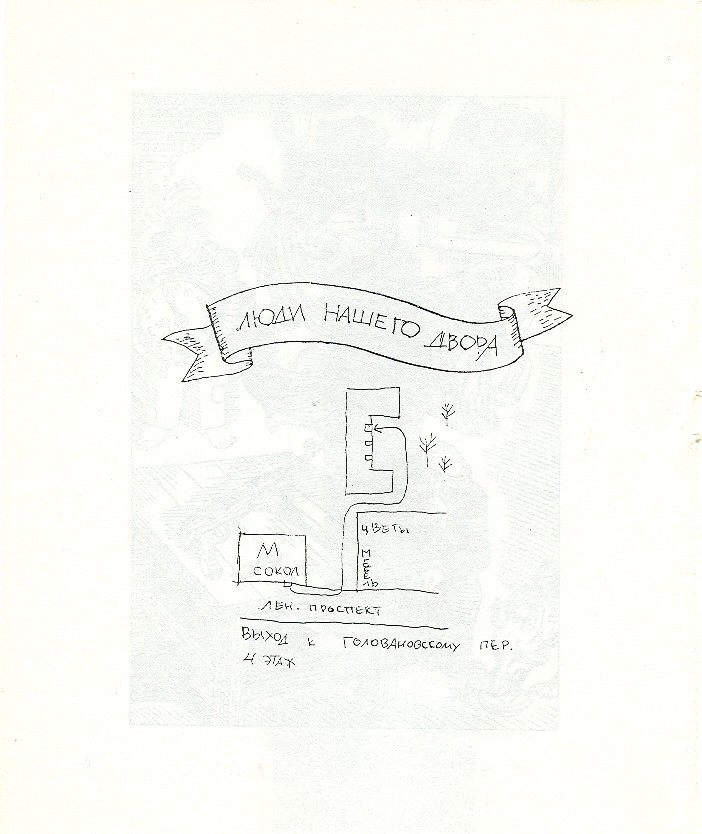 ЛЮДИ НАШЕГО ДВОРА
ЦВЕТЫ
МЕБЕЛЬ
М
СОКОЛ
ЛЕН. ПРОСПЕКТ
ВЫХОД К ГОЛОВАНОВСКОМУ ПЕР.
4 ЭТАЖ